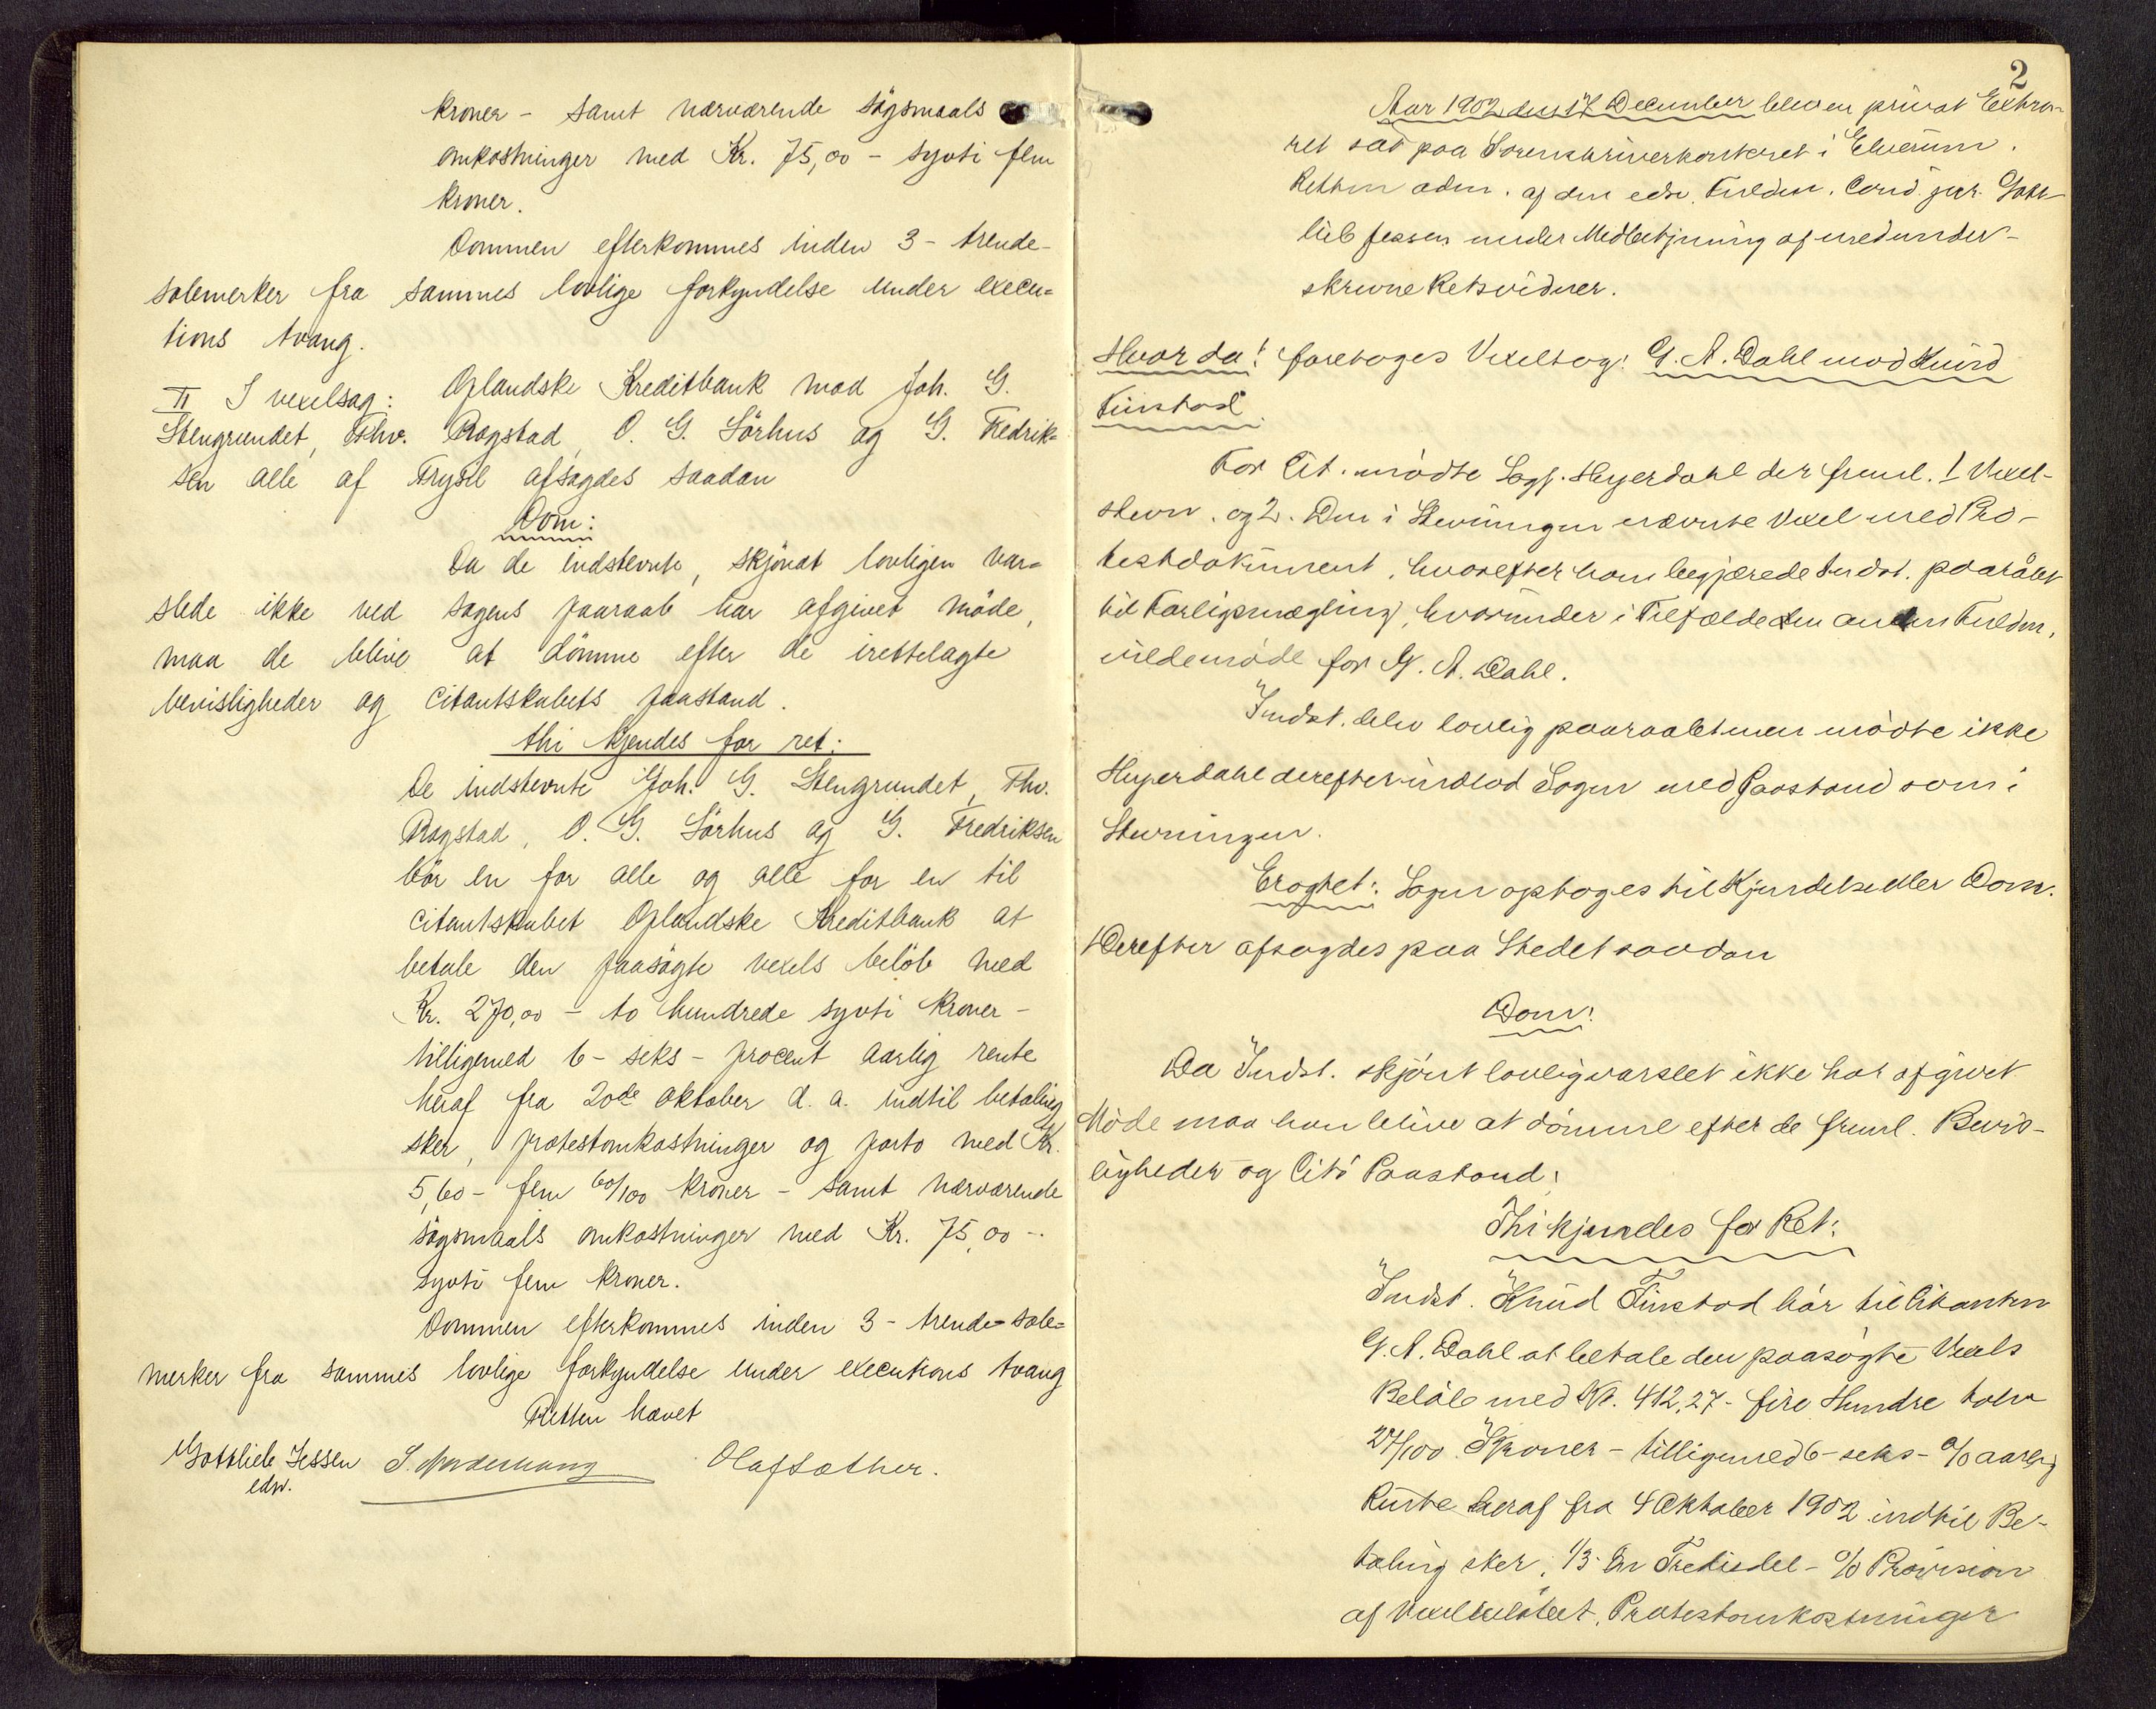 kroner - samt nærværende søgsmaals
omkostninger med Kr. 75,00 - sytti fem
kroner.
Dommen efterkommes inden 3 - trende -
solemerker fra sammes lovlige forkyndelse under execu=
tions tvang.
II I vexelsag: Oplandske Kreditbank mod Joh. G.
Stengrundet, Thv. Rogstad, O. G. Sörhus og G. Fredrik=
sen alle af Trysil afsagdes saadan
Dom:
Da de indstevnte, skjönt lovligen var=
slede ikke ved sagens paaraab har afgivet möde,
maa de blive at dömme efter de irettelagte
bevisligheder og citantskabets paastand.
thi kjendes for ret:
De indstevnte Joh. G. Stengrundet, Thv.
Rogstad, O. G. Sörhus og G. Fredriksen
bör en for alle og alle for en til
citantskabet Oplandske Kreditbank at
betale den paasögte vexels belöb med
Kr. 270,00 - to hundrede sytti kroner -
tilligemed 6 - seks - procent aarlig rente
heraf fra 20de oktober d. a. indtil betaling
sker, protestomkostninger og porto med Kr.
5,60 - fem 60/100 kroner - samt nærværende
søgsmaals omkostninger med Kr. 75,00 -
sytti fem kroner.
Dommen efterkommes inden 3 - trende - sole=
merker fra sammes lovlige forkyndelse under executions tvang
Retten hævet
Gottlieb Jessen Olaf Sæther.
edsv.
2
Aar 1902 den 17 December blev en privat Extra-
ret sat paa Sorenskriverkontoret i Elverum.
Retten adm. af den edsv. Fuldm. Cand. jur. Gott-
lieb Jessen under Medbetjening af medunder-
skrevne Retsvidner.
Hvor da! foretoges Vexelsag: G. A. Dahl mod Knud
Finstad
For Cit. mödte Sagf. Heyerdahl der freml. 1 Vexel-
stevn. og 2. Den i Stevningen nævnte Vexel med Pro-
testdokument, hvorefter han begjærede Indst. paaråbt
til Forligsmægling, hvorunder i Tilfælde den anden Fuldm.
vilde möde for G. A. Dahl.
Indst. blev lovlig paaraabt men mödte ikke
Heyerdahl derefter indlod Sagen med Paastand som i
Stevningen.
Eragtet: Sagen optoges til Kjendelse eller Dom.
Derefter afsagdes paa Stedet saadan
Dom:
Da Indst. skjönt lovlig varslet ikke har afgivet
Möde maa han blive at dömme efter de freml. Bevis-
ligheder og Cits Paastand:
Thi kjendes for Ret:
Indst. Knud Finstad bör til Citanten
G. A. Dahl at betale den paasögte Vexels
Belöb med Kr. 412,27 - fire Hundre tolv
27/100 Kroner - tilligemed 6 - seks - % aarlig
Rente heraf fra 4 Oktober 1902 indtil Be-
taling sker, 1/3 - En Trediedel - % Provision
af Vexelbelöbet, Protestomkostninger